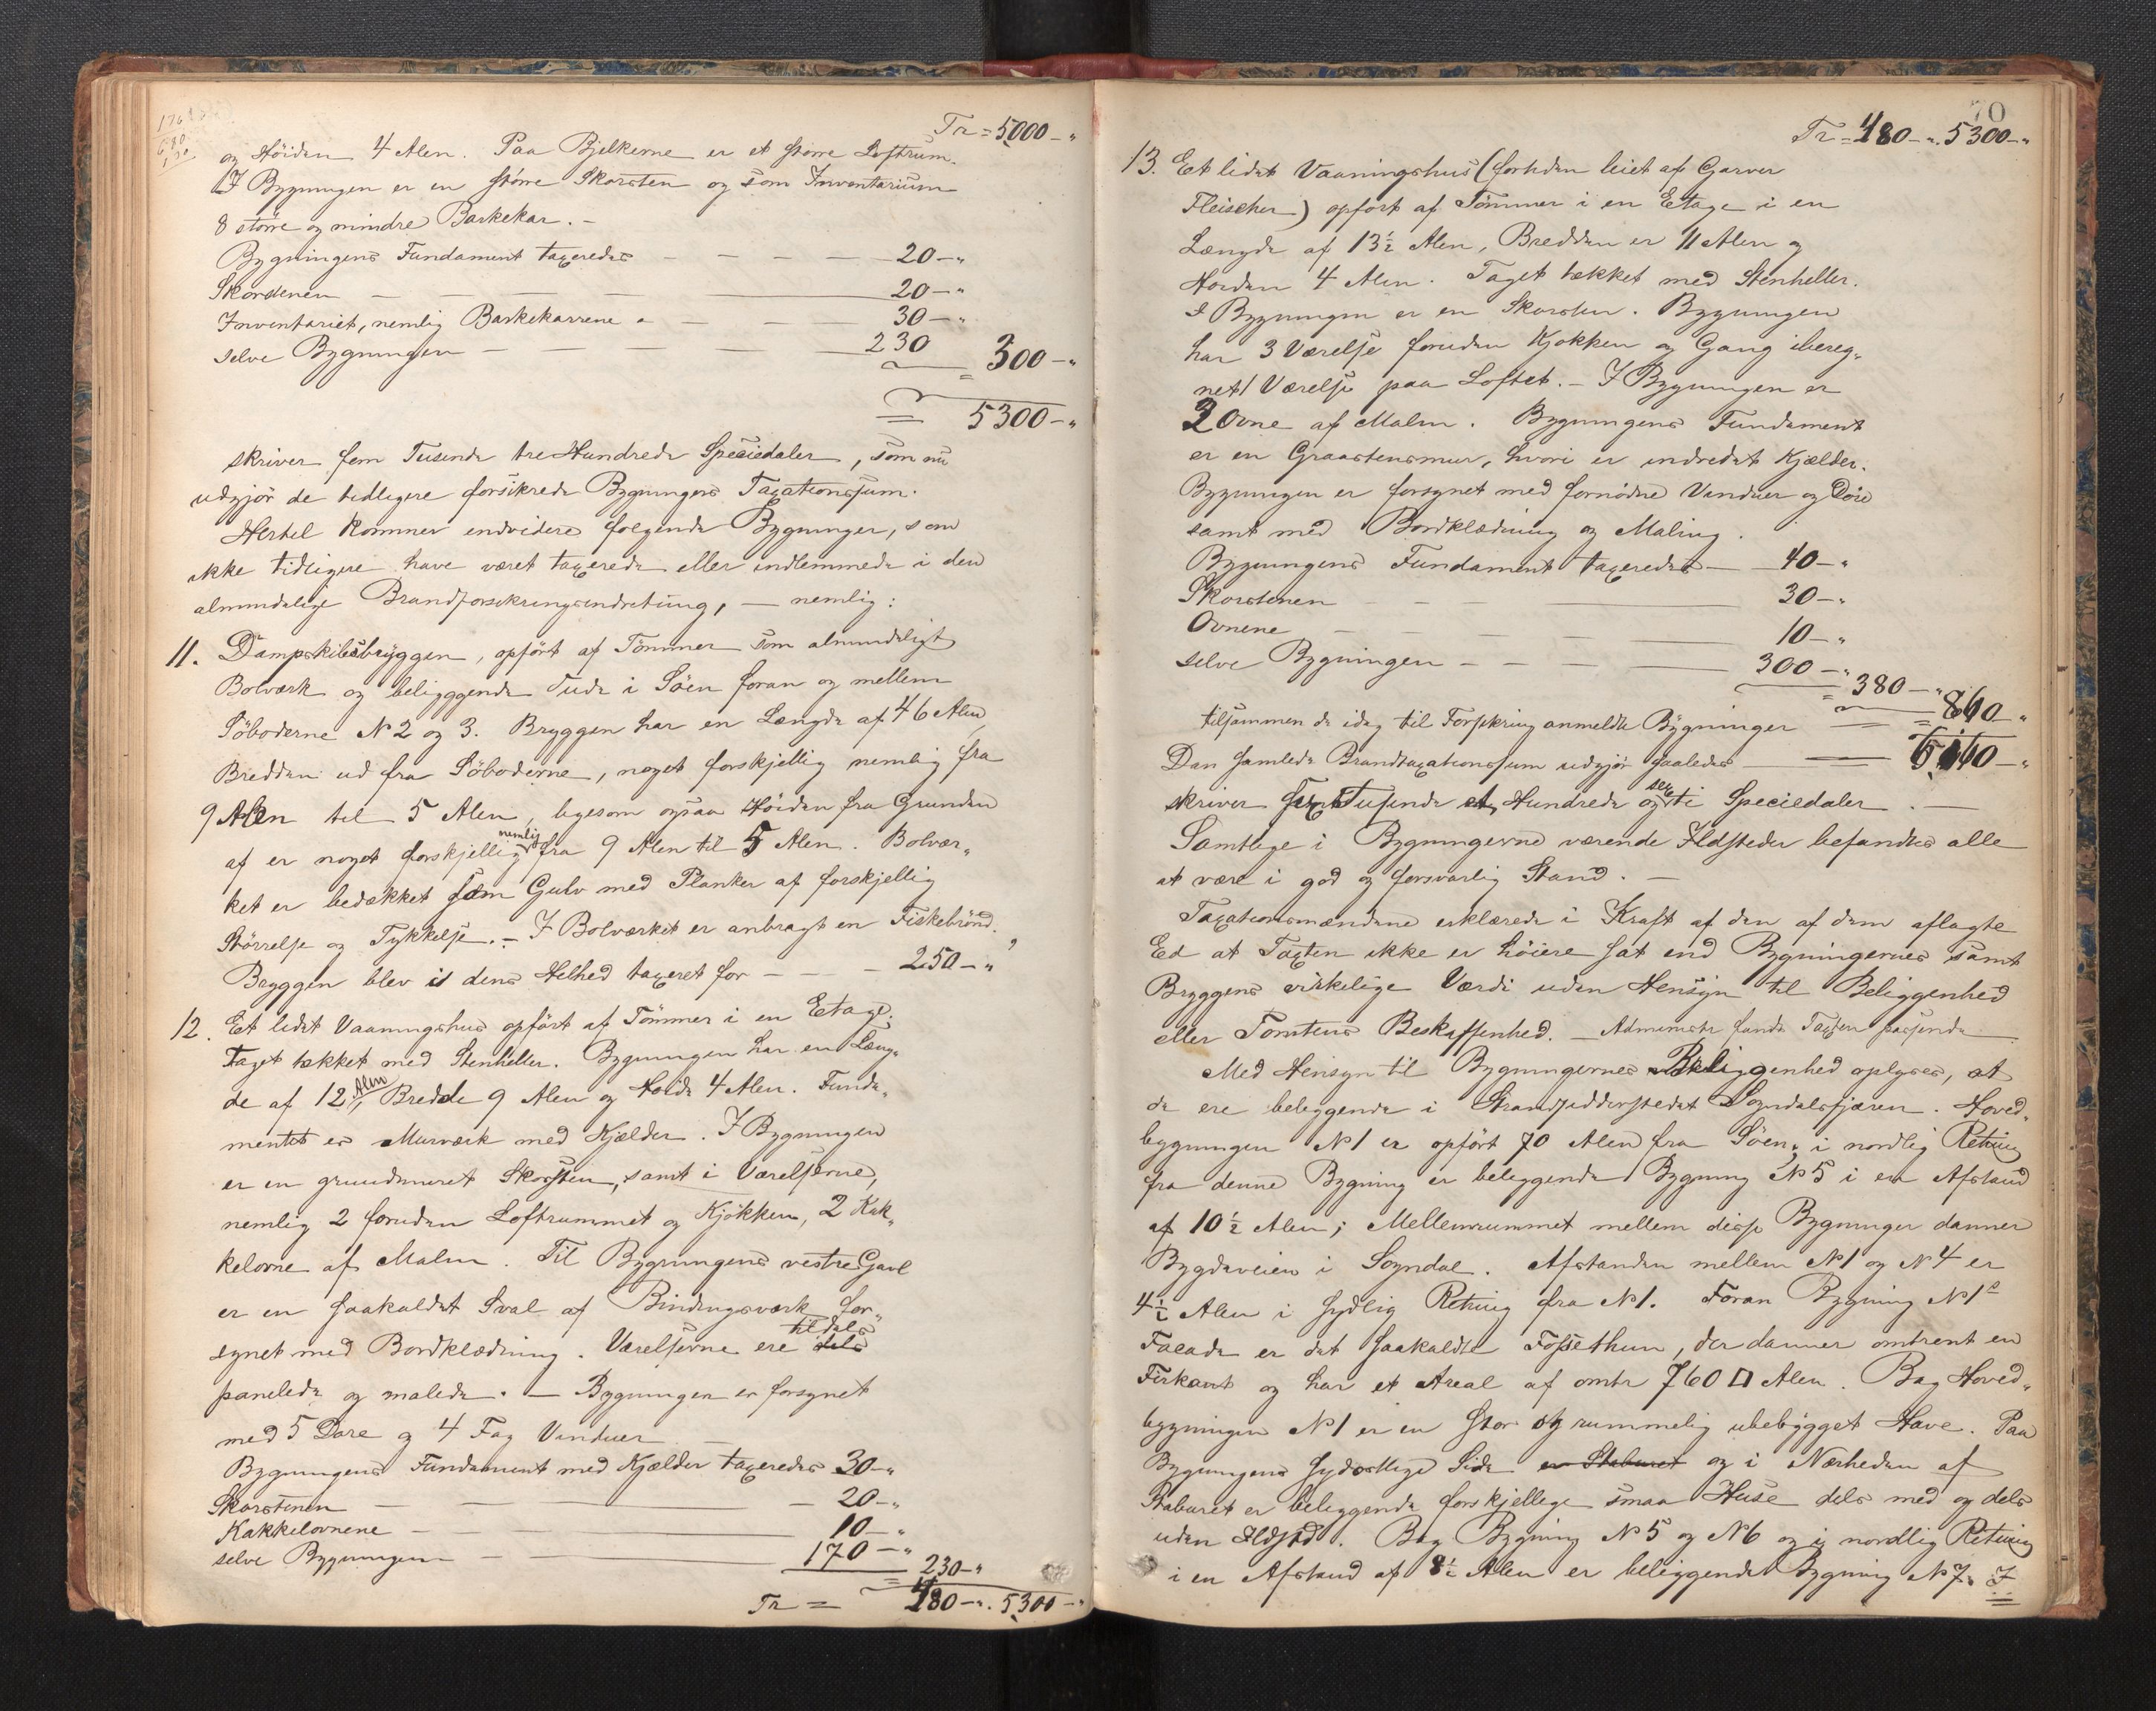 Tr = 5000 - "
og Høiden 4 Alen. Paa Bjelkerne er et større Loftrum.
I Bygningen er en større Skorsten og som Inventarium
8 større og mindre Barkekar. -
Bygningens Fundament taxeredes - - - - 20 - "
Skorstenen - - - 20 - "
Inventariet, nemlig Barkekarrene - - - 30 - "
selve Bygningen - - - 230
= 300 - "
= 5300 - "
skriver fem Tusende tre Hundrede Speciedaler, som nu
udgjør de tidligere forsikrede Bygningers Taxationssum.
Hertil kommer endvidere følgende Bygninger, som
ikke tidligere have været taxerede eller indlemmede i den
almindelige Brandforsikringsindretning, - nemlig:
11. Dampskibsbryggen, opført af Tømmer som almindeligt
Bolværk og beliggende ude i Søen foran og mellem
Søboderne N 2 og 3. Bryggen har en Længde af 46 Alen,
Bredden ud fra Søboderne, noget forskjellig nemlig fra
9 Alen til 5 Alen, ligesom ogsaa Høiden fra Grunden
af er noget forskjellig nemlig fra 9 Alen til 5 Alen. Bolvær-
ket er bedækket som Gulv med Planker af forskjellig
Størrelse og Tykkelse. - I Bolværket er anbragt en Fiskebrønd.
Bryggen blev i dens Helhed taxeret for - - - 250 - "
12. Et lidet Vaaningshus opført af Tømmer i en Etage.
Taget tækket med Stenheller. Bygningen har en Læng-
de af 12 Alen, Bredde 9 Alen og Høide 4 Alen. Funda-
mentet er Murværk med Kjælder. I Bygningen
er en grundmuret Skorsten, samt i Værelserne,
nemlig 2 foruden Loftrummet og Kjøkken, 2 Kak-
kelovne af Malm. Til Bygningens vestre Gavl
er en saakaldet Sval af Bindingsværk for-
synet med Bordklædning. Værelserne ere dels tildels
panelede og malede. - Bygningen er forsynet
med 5 Døre og 4 Fag Vinduer -
Bygningens Fundament med Kjælder taxeredes 30 - "
Skorstenen - - - 20 - "
Kakkelovnene - - 10 - "
selve Bygningen - - 170 - "
= 230 - "
Tr = 480 - ". 5300 - "
70
Tr = 480 - ". 5300 - "
13. Et lidet Vaaningshus (forhen leiet af Garver
Fleischer) opført af Tømmer i en Etage i en
Længde af 13½ Alen, Bredden er 11 Alen og
Høiden 4 Alen. Taget tækket med Stenheller.
I Bygningen er en Skorsten. Bygningen
har 3 Værelse foruden Kjøkken og Gang ibereg-
net 1 Værelse paa Loftet. - I Bygningen er
2 Ovne af Malm. Bygningens Fundament
er en Graastensmur, hvori er indredet Kjælder.
Bygningen er forsynet med fornødne Vinduer og Døre
samt med Bordklædning og Maling.
Bygningens Fundament taxeredes - 40 - "
Skorstenen - - - 30 - "
Ovnene - - - 10 - "
selve Bygningen - - - 300 - "
= 380 - "
tilsammen de idag til Forsikring anmeldte Bygninger = 860 "
Den samlede Brandtaxationssum udgjør saaledes - 6160 - "
skriver sex Tusinde et Hundrede og sexti Speciedaler. -
Samtlige i Bygningerne værende Ildsteder befandtes alle
at være i god og forsvarlig Stand. -
Taxationsmændene erklærede i Kraft af den af dem aflagte
Ed at Taxten ikke er høiere sat end Bygningernes samt
Bryggens virkelige Værdi uden Hensyn til Beliggenhed
eller Tomtens Beskaffenhed. - Administr fandt Taxten passende
Med Hensyn til Bygningernes Beliggenhed oplyses, at
de ere beliggende i Strandsidderstedet Sogndalsfjæren. Hoved-
bygningen N 1 er opført 70 Alen fra Søen, i nordlig Retning
fra denne Bygning er beliggende Bygning N 5 i en Afstand
af 10½ Alen; Mellemrummet mellem disse Bygninger danner
Bygdeveien i Sogndal. Afstanden mellem N 1 og N 4 er
4½ Alen i sydlig Retning fra N 1. Foran Bygning N 1s
Facade er det saakaldte Fossethun, der danner omtrent en
Firkant og har et Areal af omtr 760 □ Alen. Bag Hoved-
bygningen N 1 er en stor og rummelig ubebygget Have. Paa
Bygningens sydøstlige Side er Staburet og i Nærheden af
Staburet er beliggende forskjellige smaa Huse dels med og dels
uden Ildsted. Bag Bygning N 5 og N 6 og i nordlig Retning
i en Afstand af 8½ Alen er beliggendet Bygning N 7. I